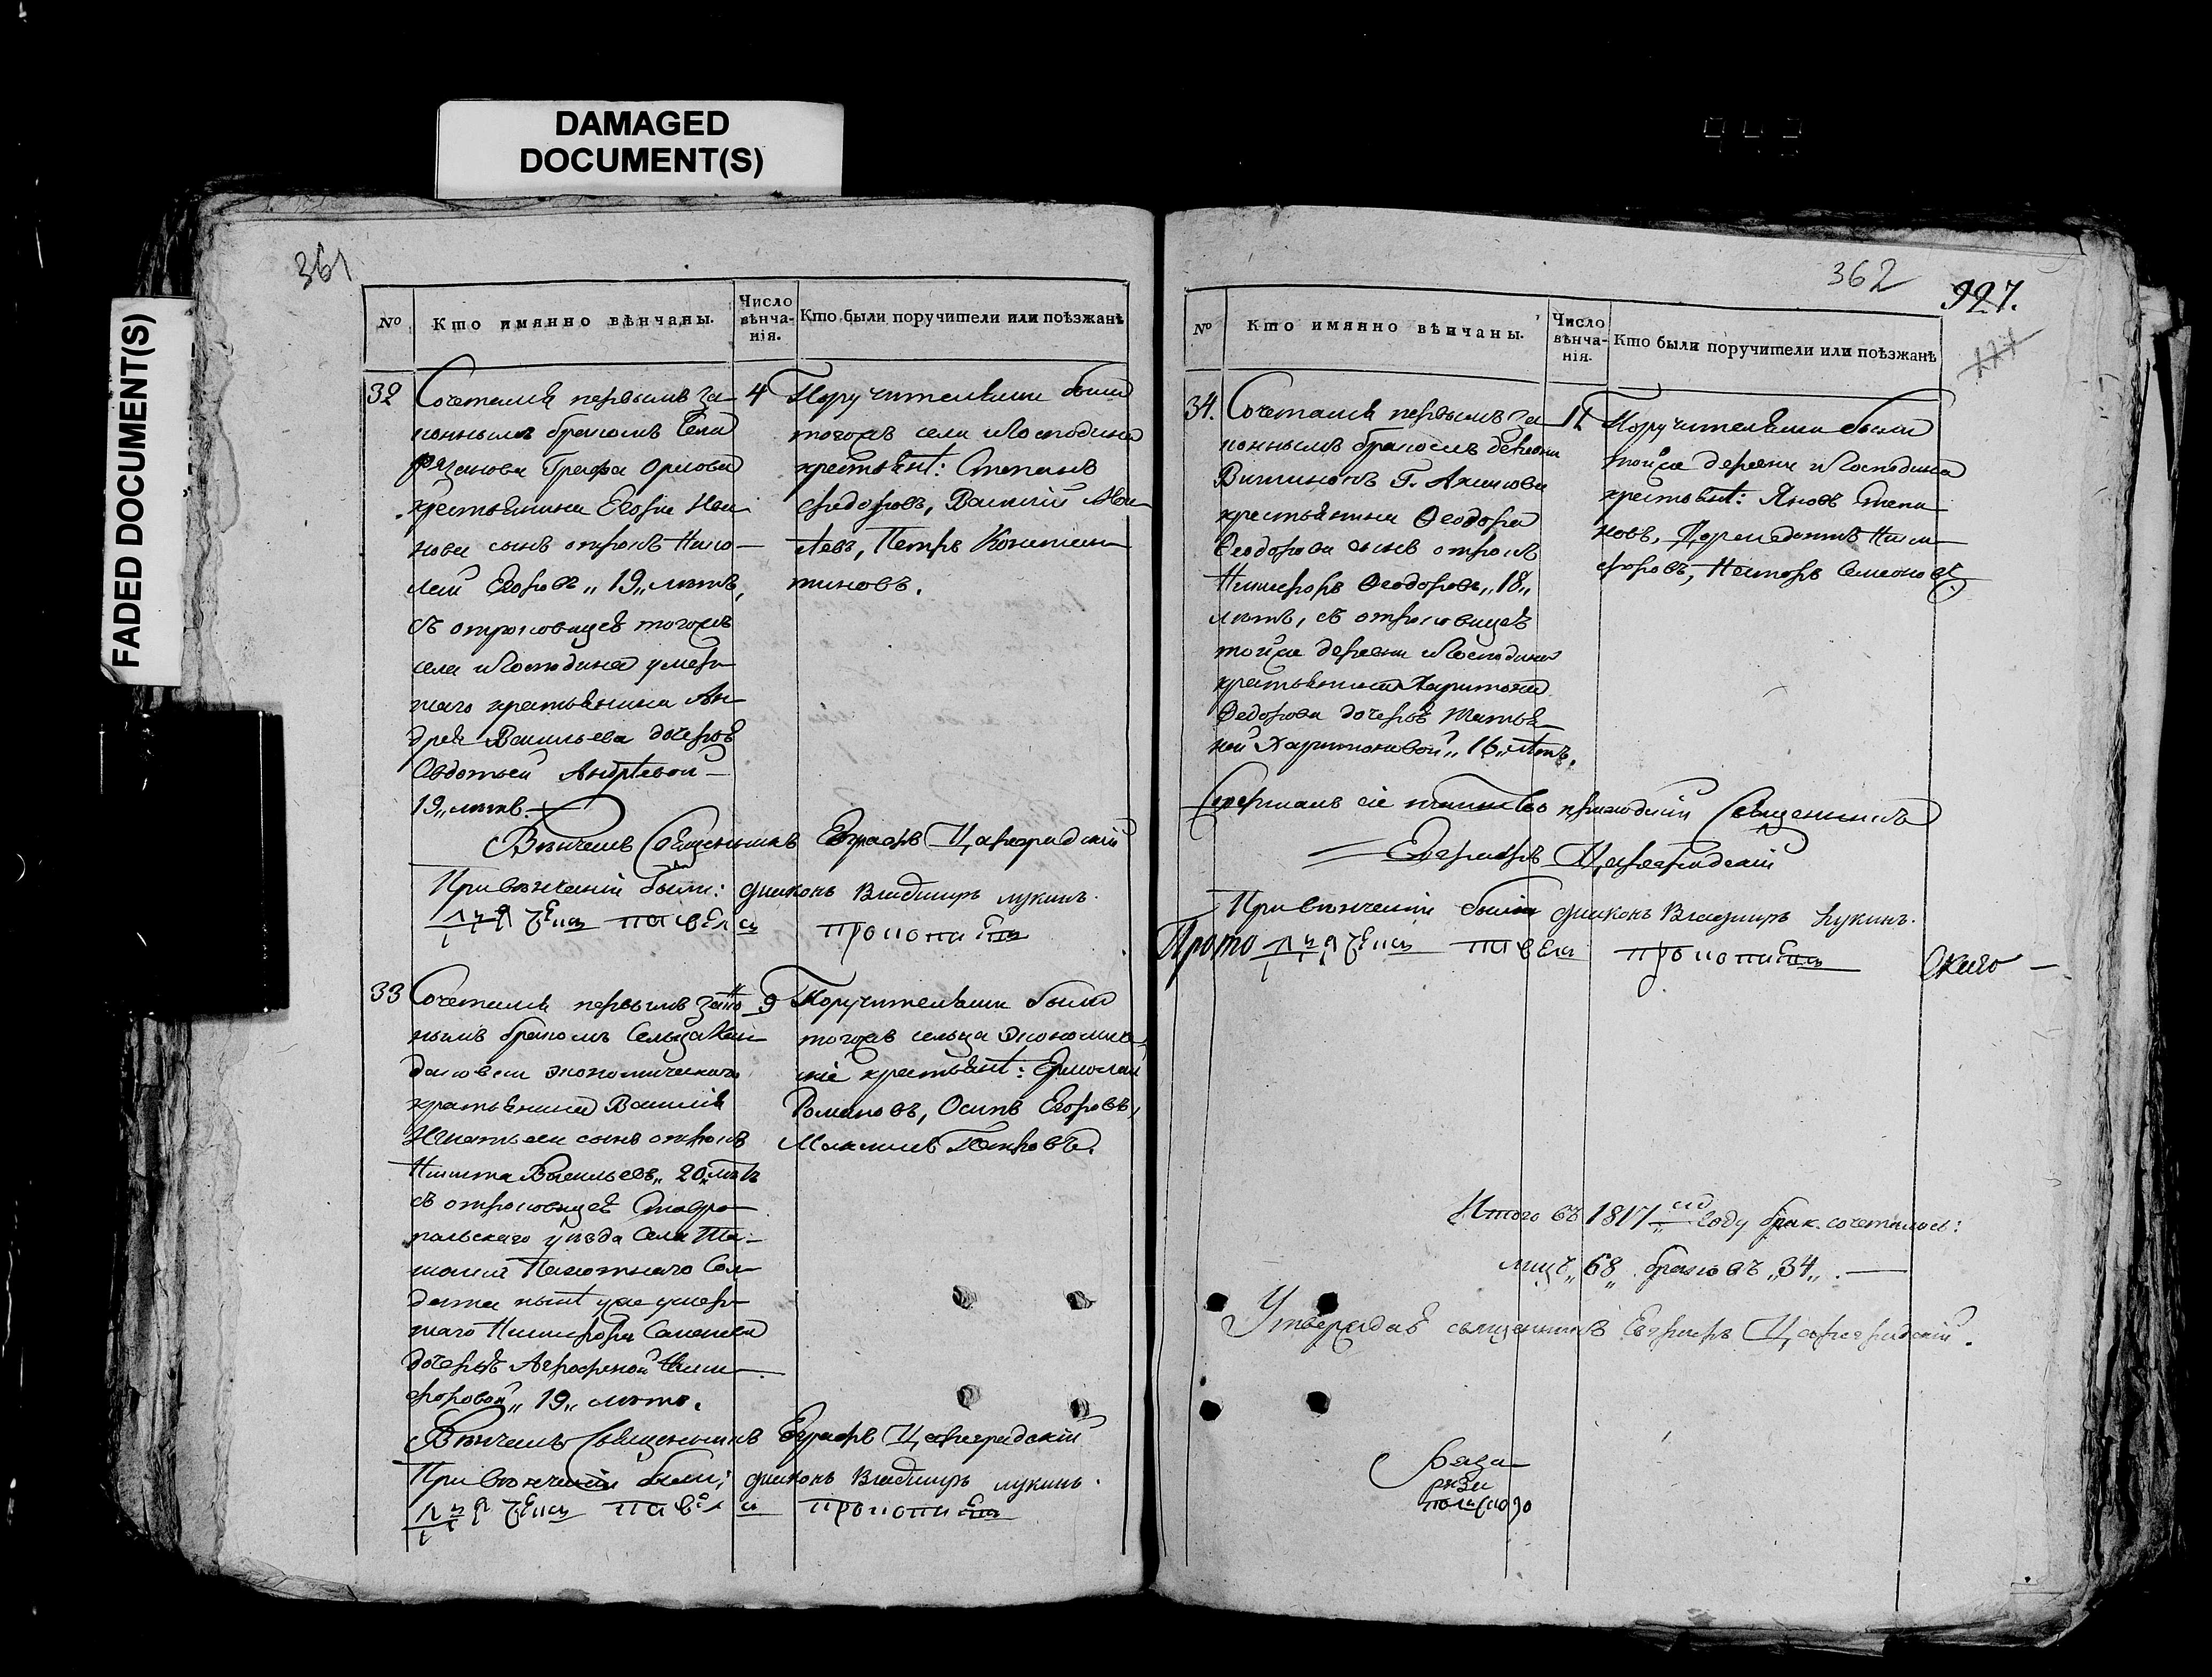 DAMAGED
DOCUMENT(S)
FADED DOCUMENT(S)
361
№
Кто имянно вѣнчаны.
Число
вѣнча-
нія.
Кто были поручители или поѣзжанѣ
32
Сочетался первымъ за-
коннымъ бракомъ Села
Рязанова Графа Орлова
крестьянина Егора Ива-
нова сынъ отрокъ Нико-
лай Егоровъ „19„ лѣтъ,
съ отроковицеѣ тогожъ
села и Господина умер-
шаго крестьянина Ан-
дрея Васильева дочерью
Овдотьей Андрѣевой
19„ лѣтъ.
4
Поручителями были
тогожъ села и Господина
крестьянѣ: Степанъ
Федоровъ, Василій
Петръ Констан-
тиновъ.
Вѣнчалъ Священникъ Евграфъ Цареградскій
При вѣнчаніи были: дияконъ Владимиръ лукинъ.
33
Сочетался первымъ закон-
нымъ бракомъ Сельца Кан-
даковки экономическаго
крестьянина Василія
Игнатьева сынъ отрокъ
Никита Васильевъ „20„ лѣтъ
съ отроковицеѣ Ставро-
польскаго уѣзда Села Та-
шолки Пахотнаго Сол-
дата нынѣ уже умер-
шаго Никифора Савельева
дочерью Агрофеной Ники-
форовой „19„ лѣтъ.
9
Поручителями были
тогожъ сельца Экономиче-
скіе крестьянѣ: Ермолай
Романовъ, Осипъ Егоровъ,
Максимъ Петровъ.
Вѣнчалъ Священникъ Евграфъ Цареградскій
При вѣнчаніи были: дияконъ Владимиръ лукинъ.
362
927.
№
Кто имянно вѣнчаны.
Число
вѣнча-
нія.
Кто были поручители или поѣзжанѣ
34.
Сочетался первымъ за-
коннымъ бракомъ деревни
крестьянина Ѳеодора
Ѳеодорова сынъ отрокъ
Никифоръ Ѳеодоровъ „18„
лѣтъ, съ отроковицеѣ
тойже деревни и Господина
крестьянина Харитона
Ѳедорова дочерью Татья-
ной Харитоновой „16„ лѣтъ.
11
Поручителями были
тойже деревни и Господина
крестьянѣ: Яковъ Степа-
новъ, Ники-
форовъ, Несторъ Семеновъ.
Совершалъ сіе таинство приходскій Священникъ
Евграфъ Цареградскій
При вѣнчаніи были дияконъ Владимиръ Лукинъ.
Итого въ 1817мъ году брак. сочеталось:
лицъ „68„ браковъ „34„.
Утверждаѣ священникъ Евграфъ Цареградскій.